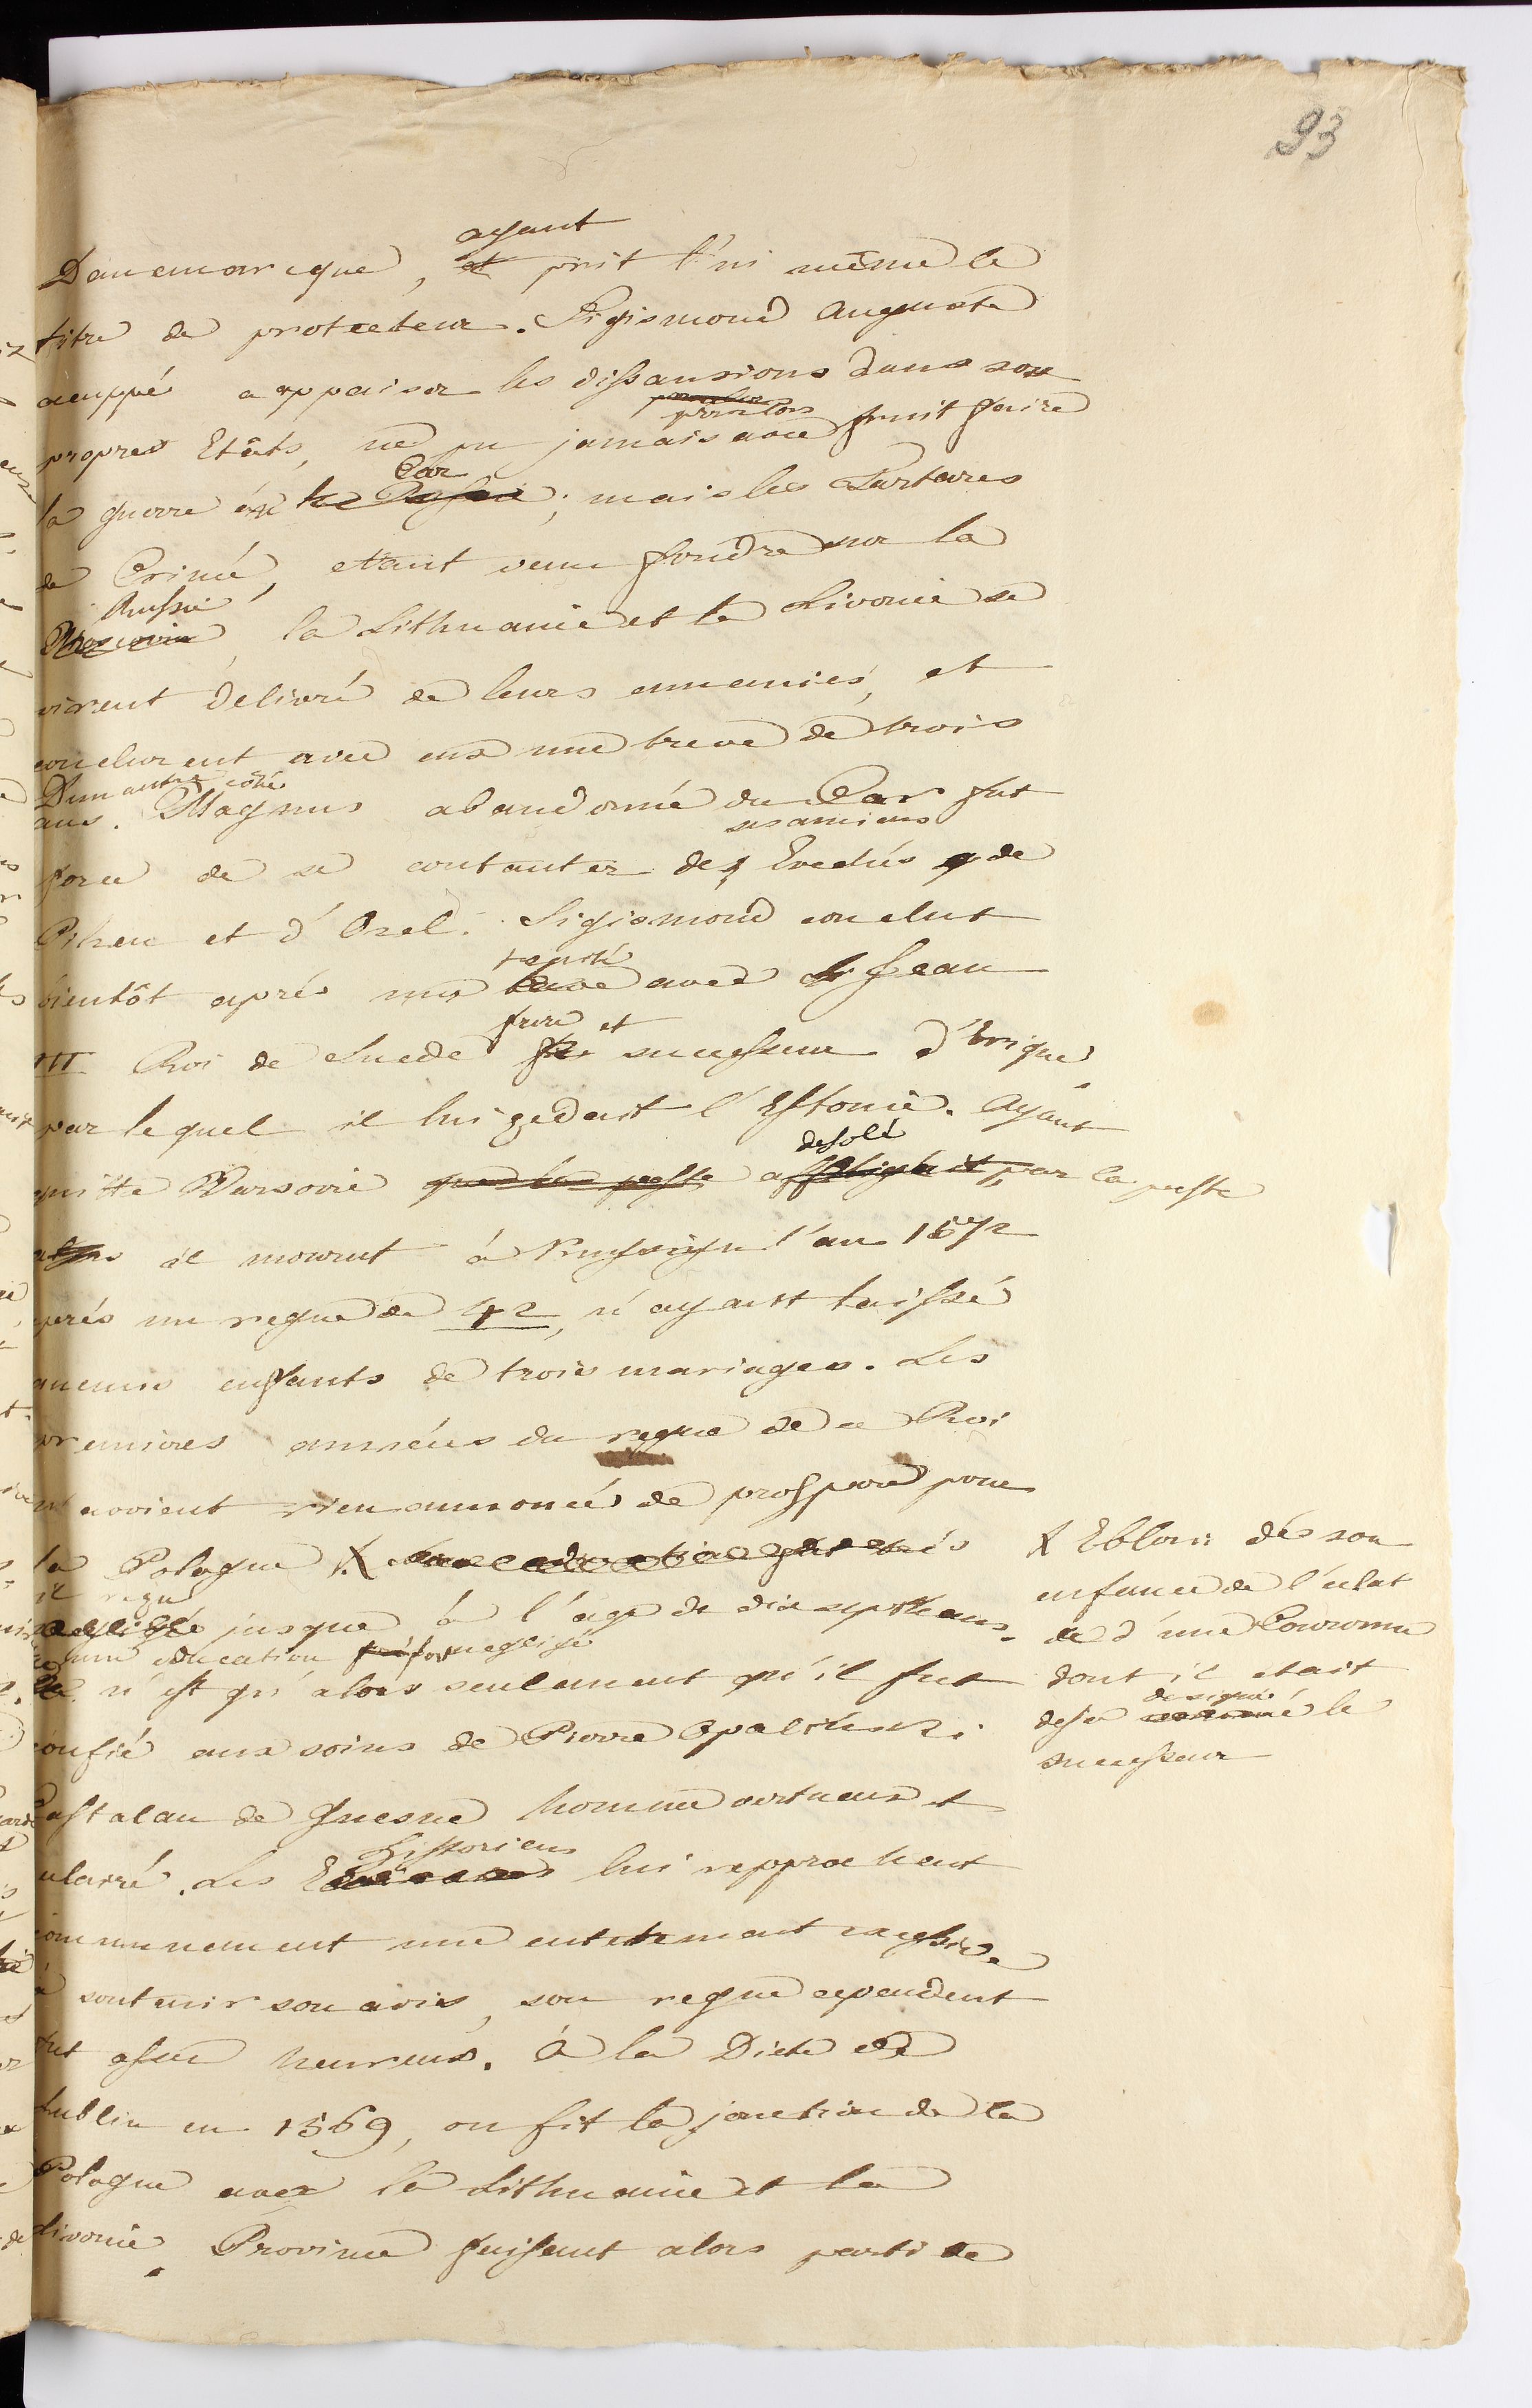 93
ayant
Danemarcque, et prit lúi même le
titre de protecteur. Sigismond Auguste
accuppé a appaiser les dissansions dans son
pour lors
propres Etâts, ne pu jamais avec fruit faire
Czar
la guerre au ; mais les Tartares
de Crimé, etant venu fondre sur la
Russie
Moscovie, la Lithuanie et la Livonie se
virent delivré de leurs ennemies, et
conclurent avec eux une treve de trois
D'un autre côté
ans. Magnus abandonné du Czar fut
ses anciens
forcé de se contanter des Evechés de
Pilzen et d'Ozel. Sigismond conclut
traité
bientôt aprés une treve avec Jean
frere et
III Roi de Suede successeur d'Erique,
par lequel il lui cedait l'Estonie. Ayant
desolé
quitté Varsovie que la peste affligeait par la peste
il mourut à Knyszyn l'an 1572
aprés un regne de 42, n'ayant laissé
aucuns enfants de trois mariages. Les
premieres années du regne de ce Roi
n'avoient rien annoncé de prospere pour
la Pologne X son education fut trés
il reçu
negligée jusque à l'age de dix sept ans.
une education fort negligé
Ce n'est qu'alors seulement qu'il fut
confié aux soins de Pierre Opalinski
Castalan de Gnesne homme vertueux et
Historiens
eclairé. Les lui repprochent
communement une entetement excessive
à soutenir son avis, son regne cependent
fut assez heureux. À la Diete de
Lublin en 1569, on fit la jonction de la
Pologne avec la Lithuanie et la
Livonie. Province faisant alors parti de
X Ebloui dés son
enfance de l'eclat
de d'une Couronne
dont il etait
designé
deja nommé le
successeur